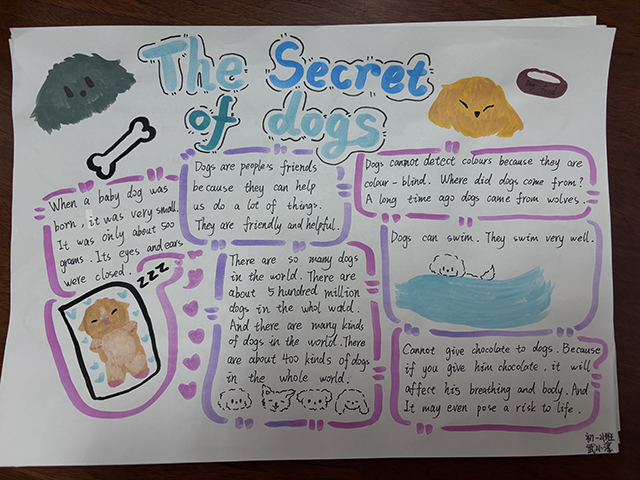 The Secret
of dogs
When a baby dog was
born, it was very small.
It was only about 500
grams. Its eyes and ears
were closed.
zzz
Dogs are people's friends
because they can help
us do a lot of things.
They are friendly and helpful.
There are so many dogs
in the world. There are
about 5 hundred million
dogs in the whol wald.
And there are many kinds
of dogs in the world. There
are about 400 kinds of dogs
in the whole world.
Dogs cannot detect colours because they are
colour-blind. Where did dogs come from?
A long time ago dogs came from wolves.
Dogs can swim. They swim very well.
Cannot give chocolate to dogs. Because
if you give him chocolate, it will
affect his breathing and body. And
It may even pose a risk to life.